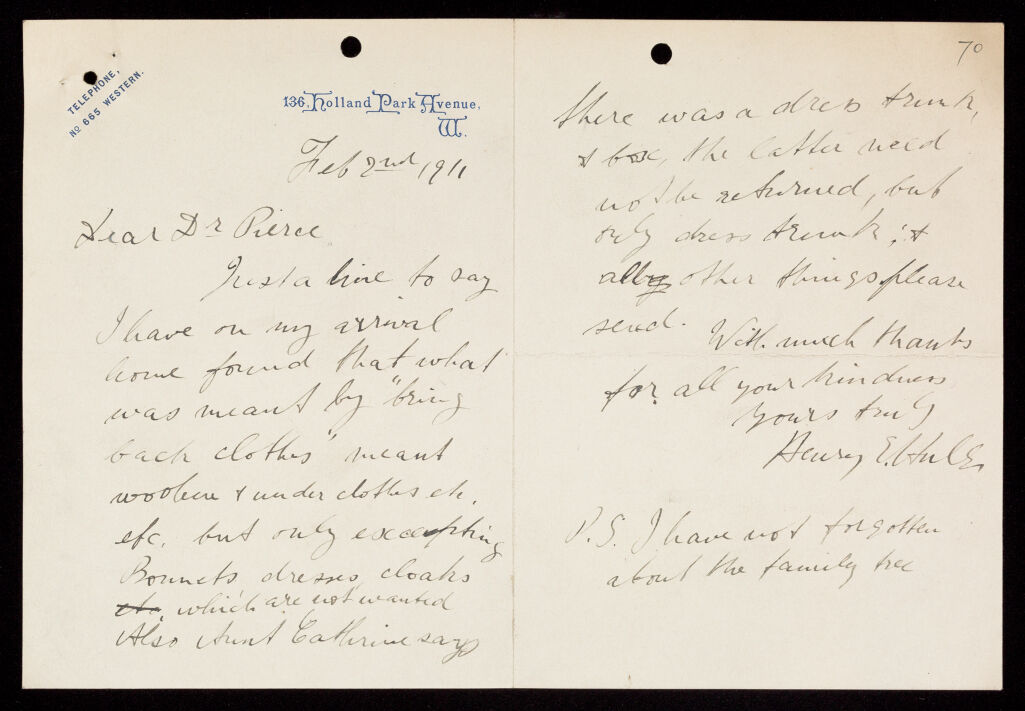 TELEPHONE,
No 665 WESTERN.
136, Holland Park Avenue,
W.
Feb 2nd, 1911
Dear Dr Pierce
Just a line to say
I have on my arrival
home found that what
was meant by "bring
back clothes" meant
woollen & under clothes etc.
etc. but only excepting
Bonnets, dresses, cloaks
etc. which are not wanted
Also Aunt Cathrine says
70
there was a dress trunk,
& box, the latter need
not be returned, but
only dress trunk; &
all other things please
send.
With much thanks
for all your kindness
Yours truly
Henry E.
P.S. I have not forgotten
about the family tree